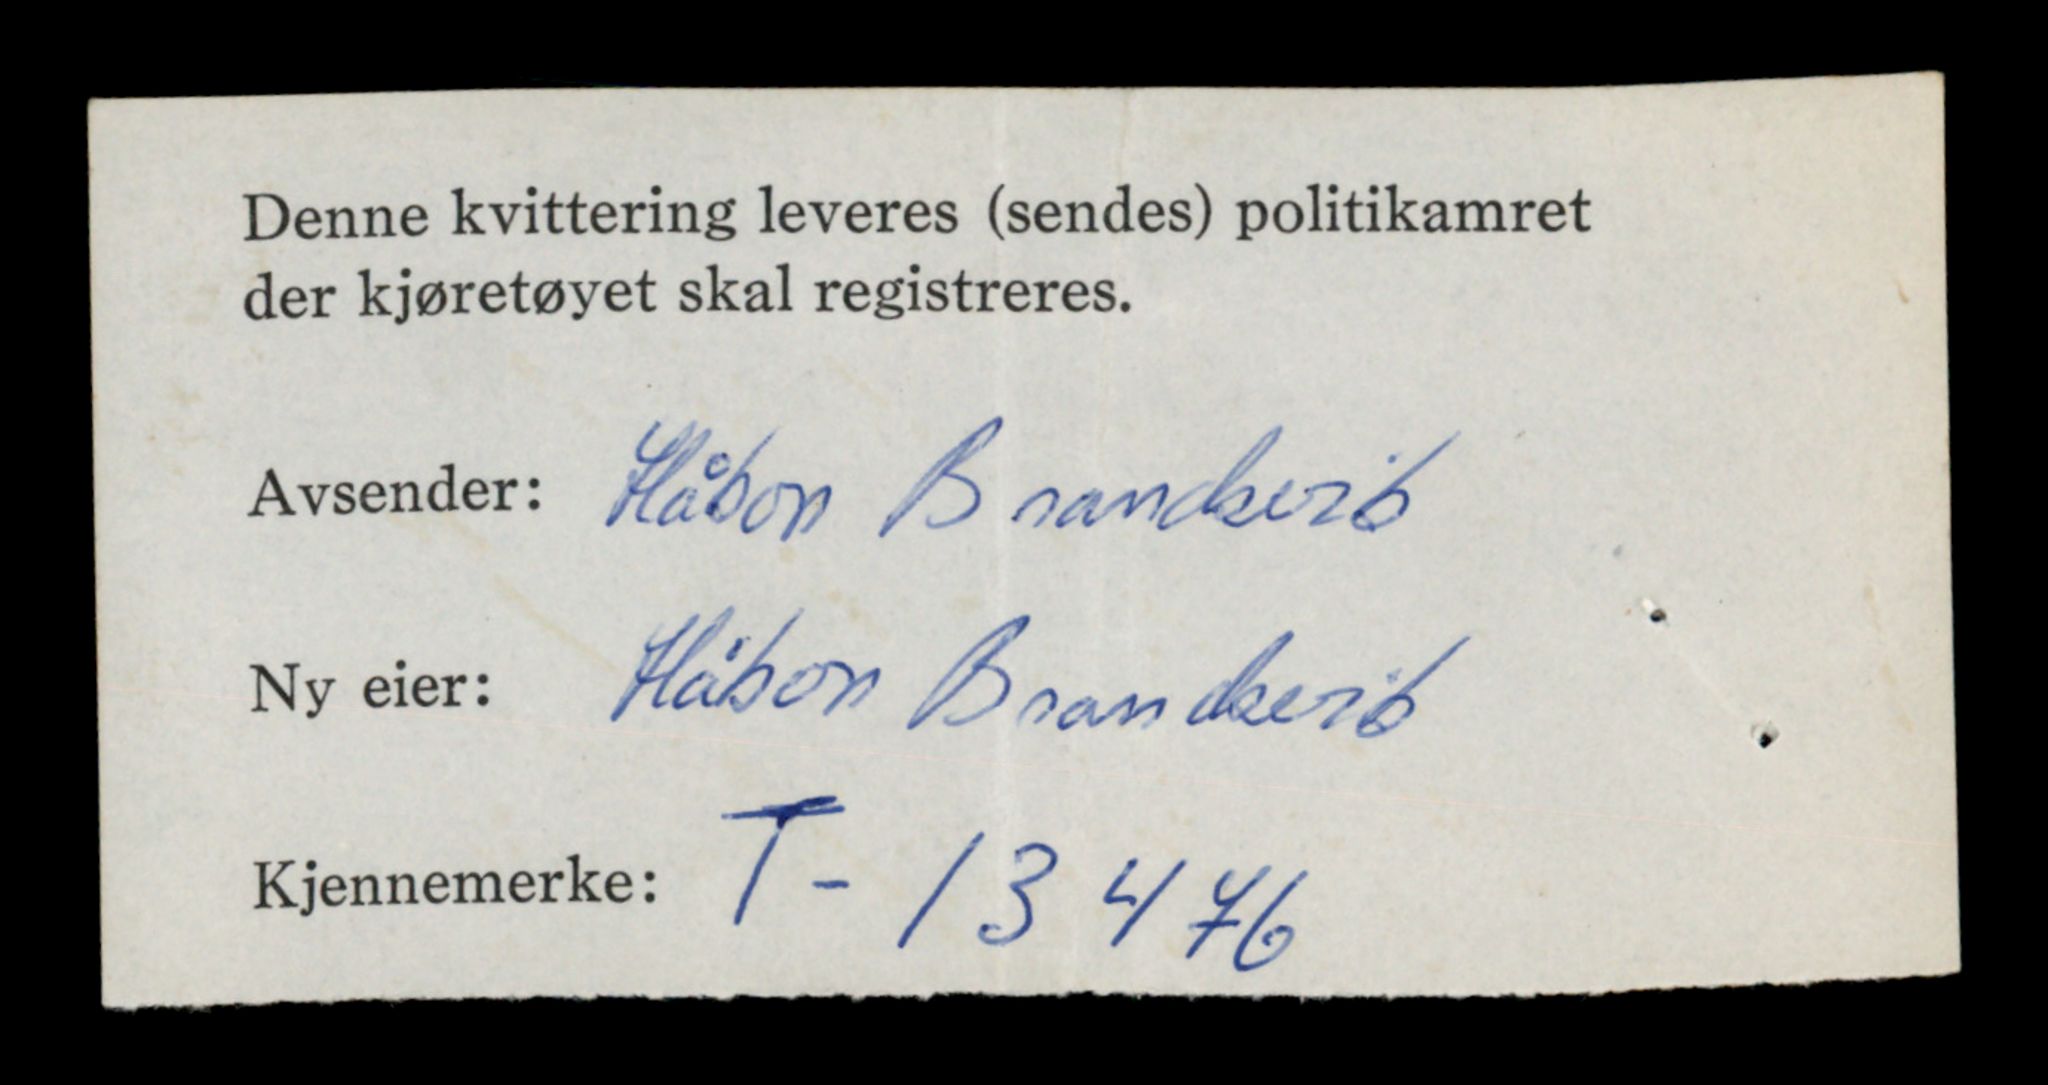 Denne kvittering leveres (sendes) politikamret
der kjøretøyet skal registreres.
Avsender: Håkon Brandsvik
Ny eier: Håkon Brandsvik
Kjennemerke: T-13476